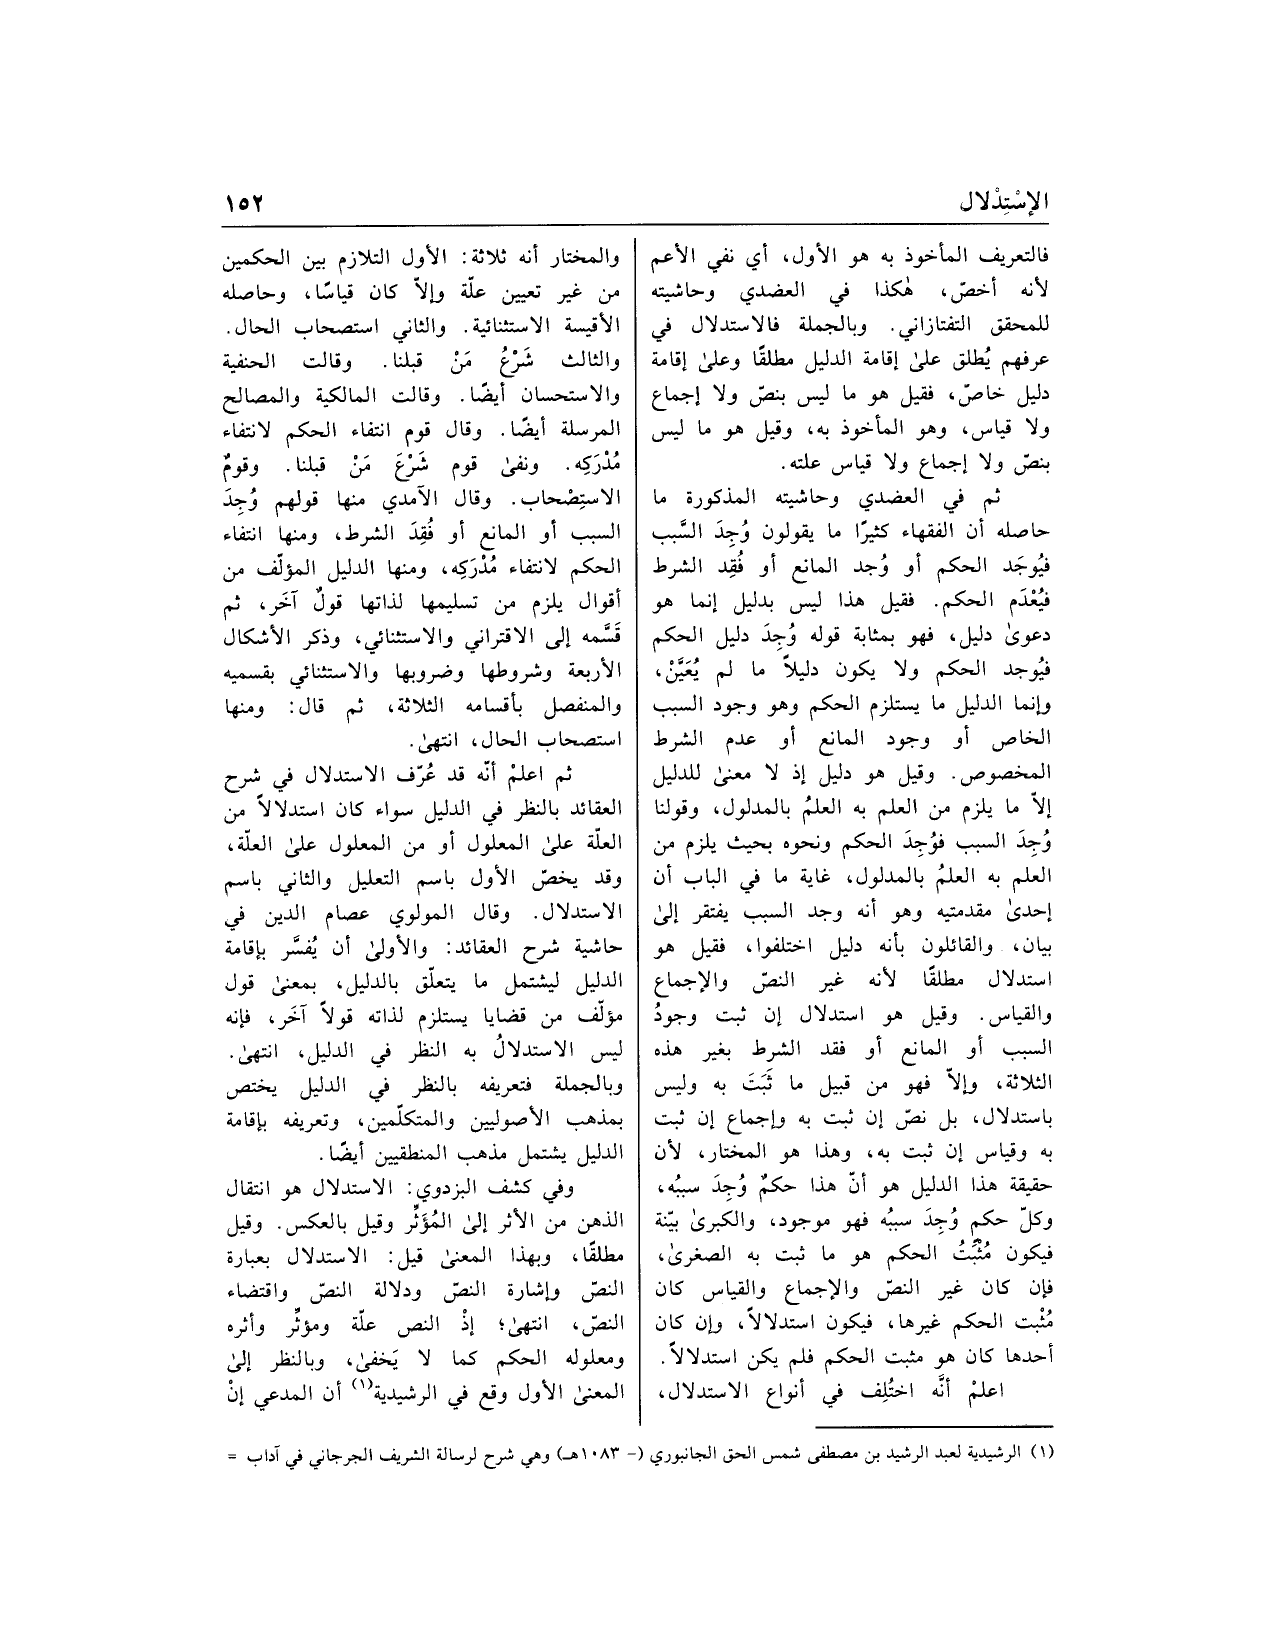 الإسْتِدْلال
١٥٢
فالتعريف المأخوذ به هو الأول، أي نفي الأعم
لأنه أخصّ، هٰكذا في العضدي وحاشيته
للمحقق التفتازاني. وبالجملة فالاستدلال في
عرفهم يُطلق علىٰ إقامة الدليل مطلقًا وعلىٰ إقامة
دليل خاصّ، فقيل هو ما ليس بنصّ ولا إجماع
ولا قياس، وهو المأخوذ به، وقيل هو ما ليس
بنصّ ولا إجماع ولا قياس علته.
ثم في العضدي وحاشيته المذكورة ما
حاصله أن الفقهاء كثيرًا ما يقولون وُجِدَ السَّبب
فيُوجَد الحكم أو وُجد المانع أو فُقِد الشرط
فيُعْدَم الحكم. فقيل هذا ليس بدليل إنما هو
دعوىٰ دليل، فهو بمثابة قوله وُجِدَ دليل الحكم
فيُوجد الحكم ولا يكون دليلاً ما لم يُعَيَّنْ،
وإنما الدليل ما يستلزم الحكم وهو وجود السبب
الخاص أو وجود المانع أو عدم الشرط
المخصوص. وقيل هو دليل إذ لا معنىٰ للدليل
إلاّ ما يلزم من العلم به العلمُ بالمدلول، وقولنا
وُجِدَ السبب فوُجِدَ الحكم ونحوه بحيث يلزم من
العلم به العلمُ بالمدلول، غاية ما في الباب أن
إحدىٰ مقدمتيه وهو أنه وجد السبب يفتقر إلىٰ
بيان، والقائلون بأنه دليل اختلفوا، فقيل هو
استدلال مطلقًا لأنه غير النصّ والإجماع
والقياس. وقيل هو استدلال إن ثبت وجودُ
السبب أو المانع أو فقد الشرط بغير هذه
الثلاثة، وإلاّ فهو من قبيل ما ثَبَتَ به وليس
باستدلال، بل نصّ إن ثبت به وإجماع إن ثبت
به وقياس إن ثبت به، وهذا هو المختار، لأن
حقيقة هذا الدليل هو أنّ هذا حكمٌ وُجِدَ سببُه،
وكلّ حكمٍ وُجِدَ سببُه فهو موجود، والكبرىٰ بيّنة
فيكون مُثْبَتُ الحكم هو ما ثبت به الصغرىٰ،
فإن كان غير النصّ والإجماع والقياس كان
مُثْبت الحكم غيرها، فيكون استدلالاً، وإن كان
أحدها كان هو مثبت الحكم فلم يكن استدلالاً.
اعلمْ أنَّه اختُلِف في أنواع الاستدلال،
والمختار أنه ثلاثة: الأول التلازم بين الحكمين
من غير تعيين علّة وإلاّ كان قياسًا، وحاصله
الأقيسة الاستثنائية. والثاني استصحاب الحال.
والثالث شَرْعُ مَنْ قبلنا. وقالت الحنفية
والاستحسان أيضًا. وقالت المالكية والمصالح
المرسلة أيضًا. وقال قوم انتفاء الحكم لانتفاء
مُدْرَكِه. ونفىٰ قوم شَرْعَ مَنْ قبلنا. وقومٌ
الاستِصْحاب. وقال الآمدي منها قولهم وُجِدَ
السبب أو المانع أو فُقِدَ الشرط، ومنها انتفاء
الحكم لانتفاء مُدْرَكِه، ومنها الدليل المؤلّف من
أقوال يلزم من تسليمها لذاتها قولٌ آخَر، ثم
قَسَّمه إلى الاقتراني والاستثنائي، وذكر الأشكال
الأربعة وشروطها وضروبها والاستثنائي بقسميه
والمنفصل بأقسامه الثلاثة، ثم قال: ومنها
استصحاب الحال، انتهىٰ.
ثم اعلمْ أنّه قد عُرّف الاستدلال في شرح
العقائد بالنظر في الدليل سواء كان استدلالاً من
العلّة علىٰ المعلول أو من المعلول علىٰ العلّة،
وقد يخصّ الأول باسم التعليل والثاني باسم
الاستدلال. وقال المولوي عصام الدين في
حاشية شرح العقائد: والأولىٰ أن يُفسَّر بإقامة
الدليل ليشتمل ما يتعلّق بالدليل، بمعنىٰ قول
مؤلّف من قضايا يستلزم لذاته قولاً آخَر، فإنه
ليس الاستدلالُ به النظر في الدليل، انتهىٰ.
وبالجملة فتعريفه بالنظر في الدليل يختص
بمذهب الأصوليين والمتكلّمين، وتعريفه بإقامة
الدليل يشتمل مذهب المنطقيين أيضًا.
وفي كشف البزدوي: الاستدلال هو انتقال
الذهن من الأثر إلىٰ المُؤَثِّر وقيل بالعكس. وقيل
مطلقًا، وبهذا المعنىٰ قيل: الاستدلال بعبارة
النصّ وإشارة النصّ ودلالة النصّ واقتضاء
النصّ، انتهىٰ؛ إذْ النص علّة ومؤثِّر وأثره
ومعلوله الحكم كما لا يَخفىٰ، وبالنظر إلىٰ
المعنىٰ الأول وقع في الرشيدية(١) أن المدعي إنْ
(١) الرشيدية لعبد الرشيد بن مصطفى شمس الحق الجانبوري (- ١٠٨٣هـ) وهي شرح لرسالة الشريف الجرجاني في آداب =